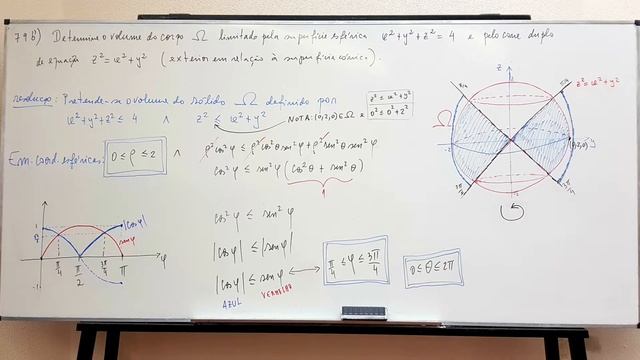 79 b) Determine o volume do corpo Ω limitado pela superfície esférica x²+y²+z² = 4 e pelo cone duplo
de equação z² = x²+y² (exterior em relação à superfície cónica).
resolução: Pretende-se o volume do sólido Ω definido por
x²+y²+z² ≤ 4 ∧ z² ≤ x²+y²
NOTA: (0,2,0) ∈ Ω e
z² ≤ x²+y²
0² ≤ 0²+2²
Em coord. esféricas: 0 ≤ ρ ≤ 2 ∧ ρ² cos²φ ≤ ρ² cos²θ sen²φ + ρ² sen²θ sen²φ
cos²φ ≤ sen²φ (cos²θ + sen²θ)
1
cos²φ ≤ sen²φ
|cos φ| ≤ |sen φ|
|cos φ| ≤ sen φ ⟷ π/4 ≤ φ ≤ 3π/4
0 ≤ θ ≤ 2π
AZUL VERMELHO
1
|cos φ|
sen φ
-1
π/4 π/2 3π/4 π φ
z
π/4 π/4
z² = x²+y²
Ω
(0,2,0) y
3π/4 3π/4